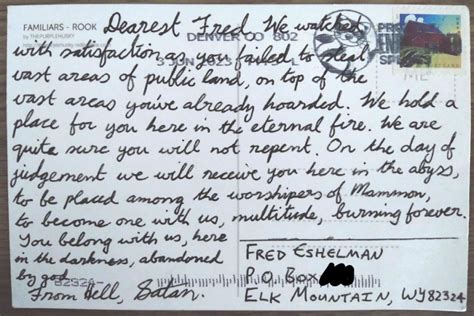 FAMILIARS - ROOK
by THEPURPLEHUSKY
DENVER CO 802
3 JUN 2023
Dearest Fred, We watched
with satisfaction as you failed to steal
vast areas of public land, on top of the
vast areas you've already hoarded. We hold a
place for you here in the eternal fire. We are
quite sure you will not repent. On the day of
judgement we will receive you here in the abyss,
to be placed among the worshipers of Mammon,
to become one with us, multitude, burning forever.
You belong with us, here
in the darkness, abandoned
by god.
From Hell, Satan.
82324
FRED ESHELMAN
P.O. BOX
ELK MOUNTAIN, WY 82324